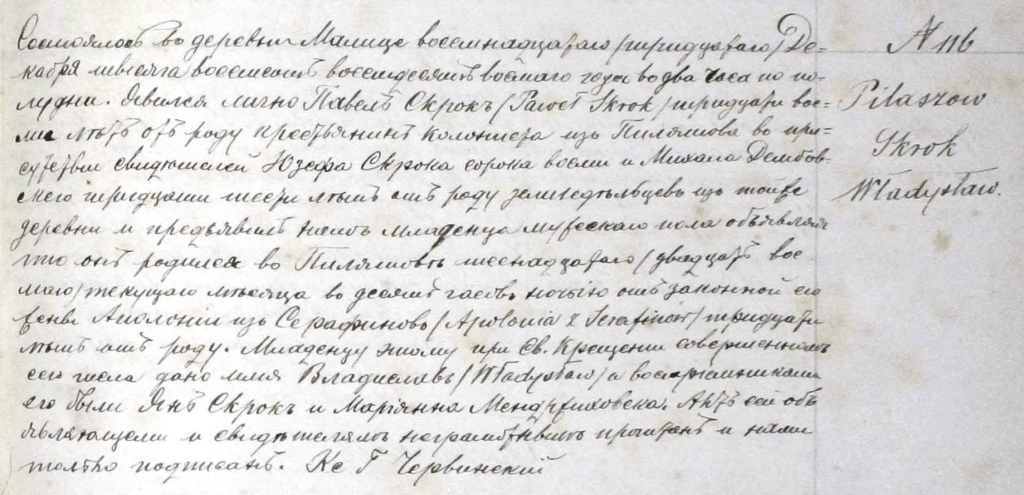 Состоялось во деревьни Малице восемнадцатаго /тридцатаго/ Де-
кабря мѣсяца восемсотъ восемдесятъ восьмаго года во два часа по по-
лудни. Явился лично Павелъ Скрокъ /Paweł Skrok/ тридцати вос-
ми лѣтъ отъ роду крестьянинъ колониста изъ Пиляшова во при-
сутствіи свидѣтелей Юзефа Скрока сорока восми и Михала Дембов-
скаго тридцати шести лѣтъ отъ роду земледѣльцевъ изъ той же
деревни и предъявилъ намъ младенца мужескаго пола объявляя
что онъ родился во Пиляшовѣ шеснадцатаго /двадцать вос-
маго/ текущаго мѣсяца во десять часовъ ночью отъ законной его
жены Аполоніи изъ Серафиново /Apolonia z Serafinow/ тридцати
лѣтъ отъ роду. Младенцу этому при Св. Крещеніи совершенномъ
сего числа дано имя Владиславъ /Władysław/ а воспріемниками
его были Янъ Скрокъ и Маріянна Мендржиховска. Актъ сей объ
являющему и свидѣтелямъ неграмотнымъ прочитанъ и нами
только подписанъ. Кс Г Червинскій
N 116
Pilaszow
Skrok
Władysław.